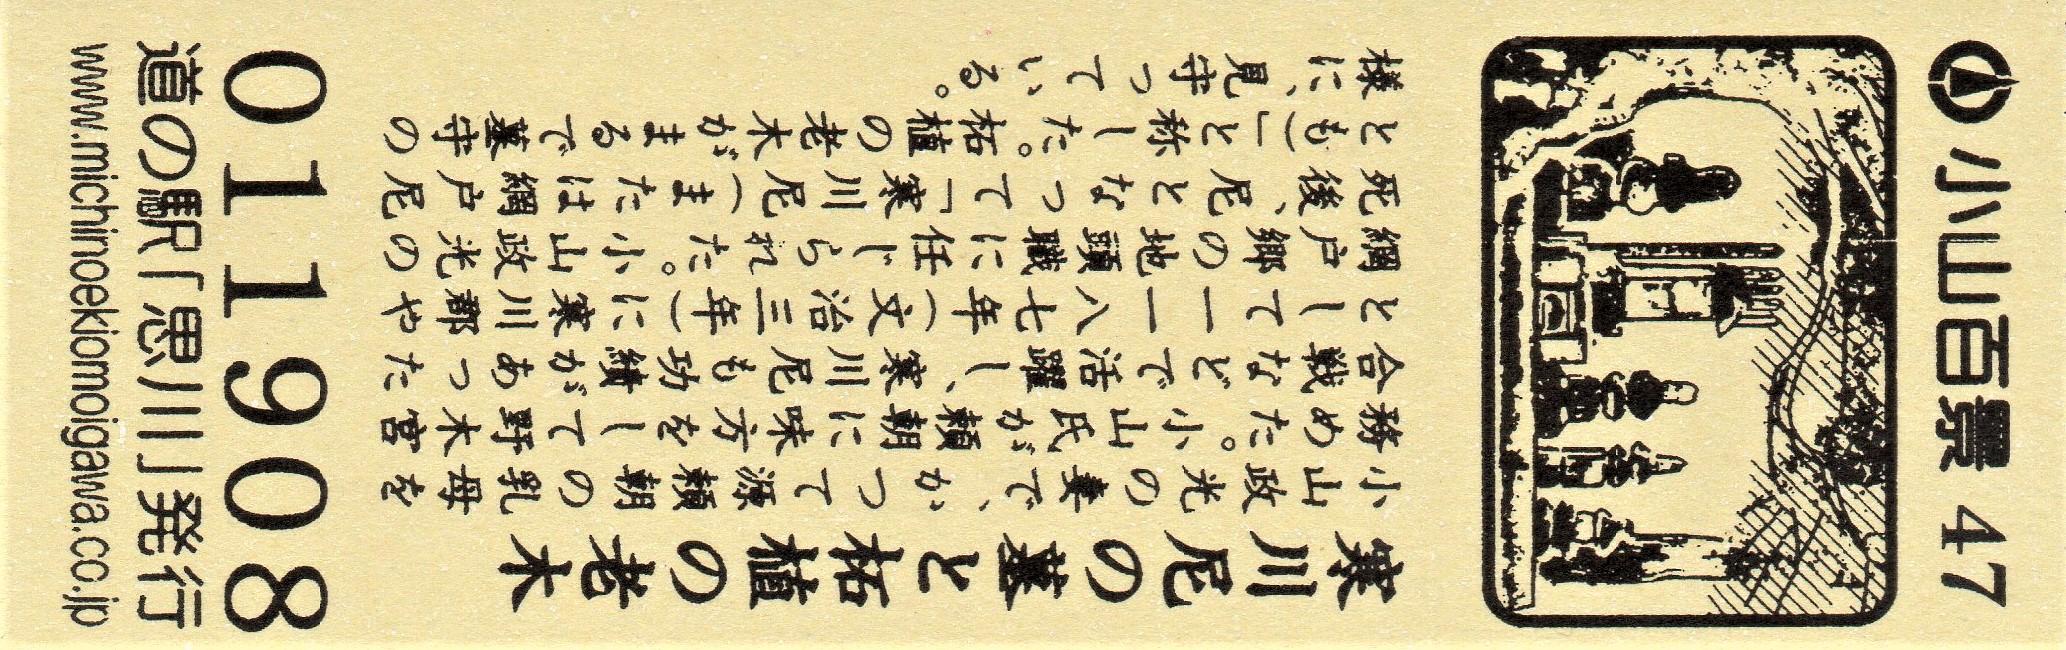 小山百景 47
寒川尼の墓と柘植の老木
小山政光の妻で、かつて源頼朝の乳母を
務めた。小山氏が頼朝に味方をして野木宮
合戦などで活躍し、寒川尼も功績があった
として一一八七年（文治三年）に寒川郡や
網戸郷の地頭職に任じられた。小山政光の
死後、尼となって「寒川尼（または網戸尼
とも）」と称した。柘植の老木がまるで墓守の
様に、見守っている。
011908
道の駅「思川」発行
www.michinoekiomoigawa.co.jp